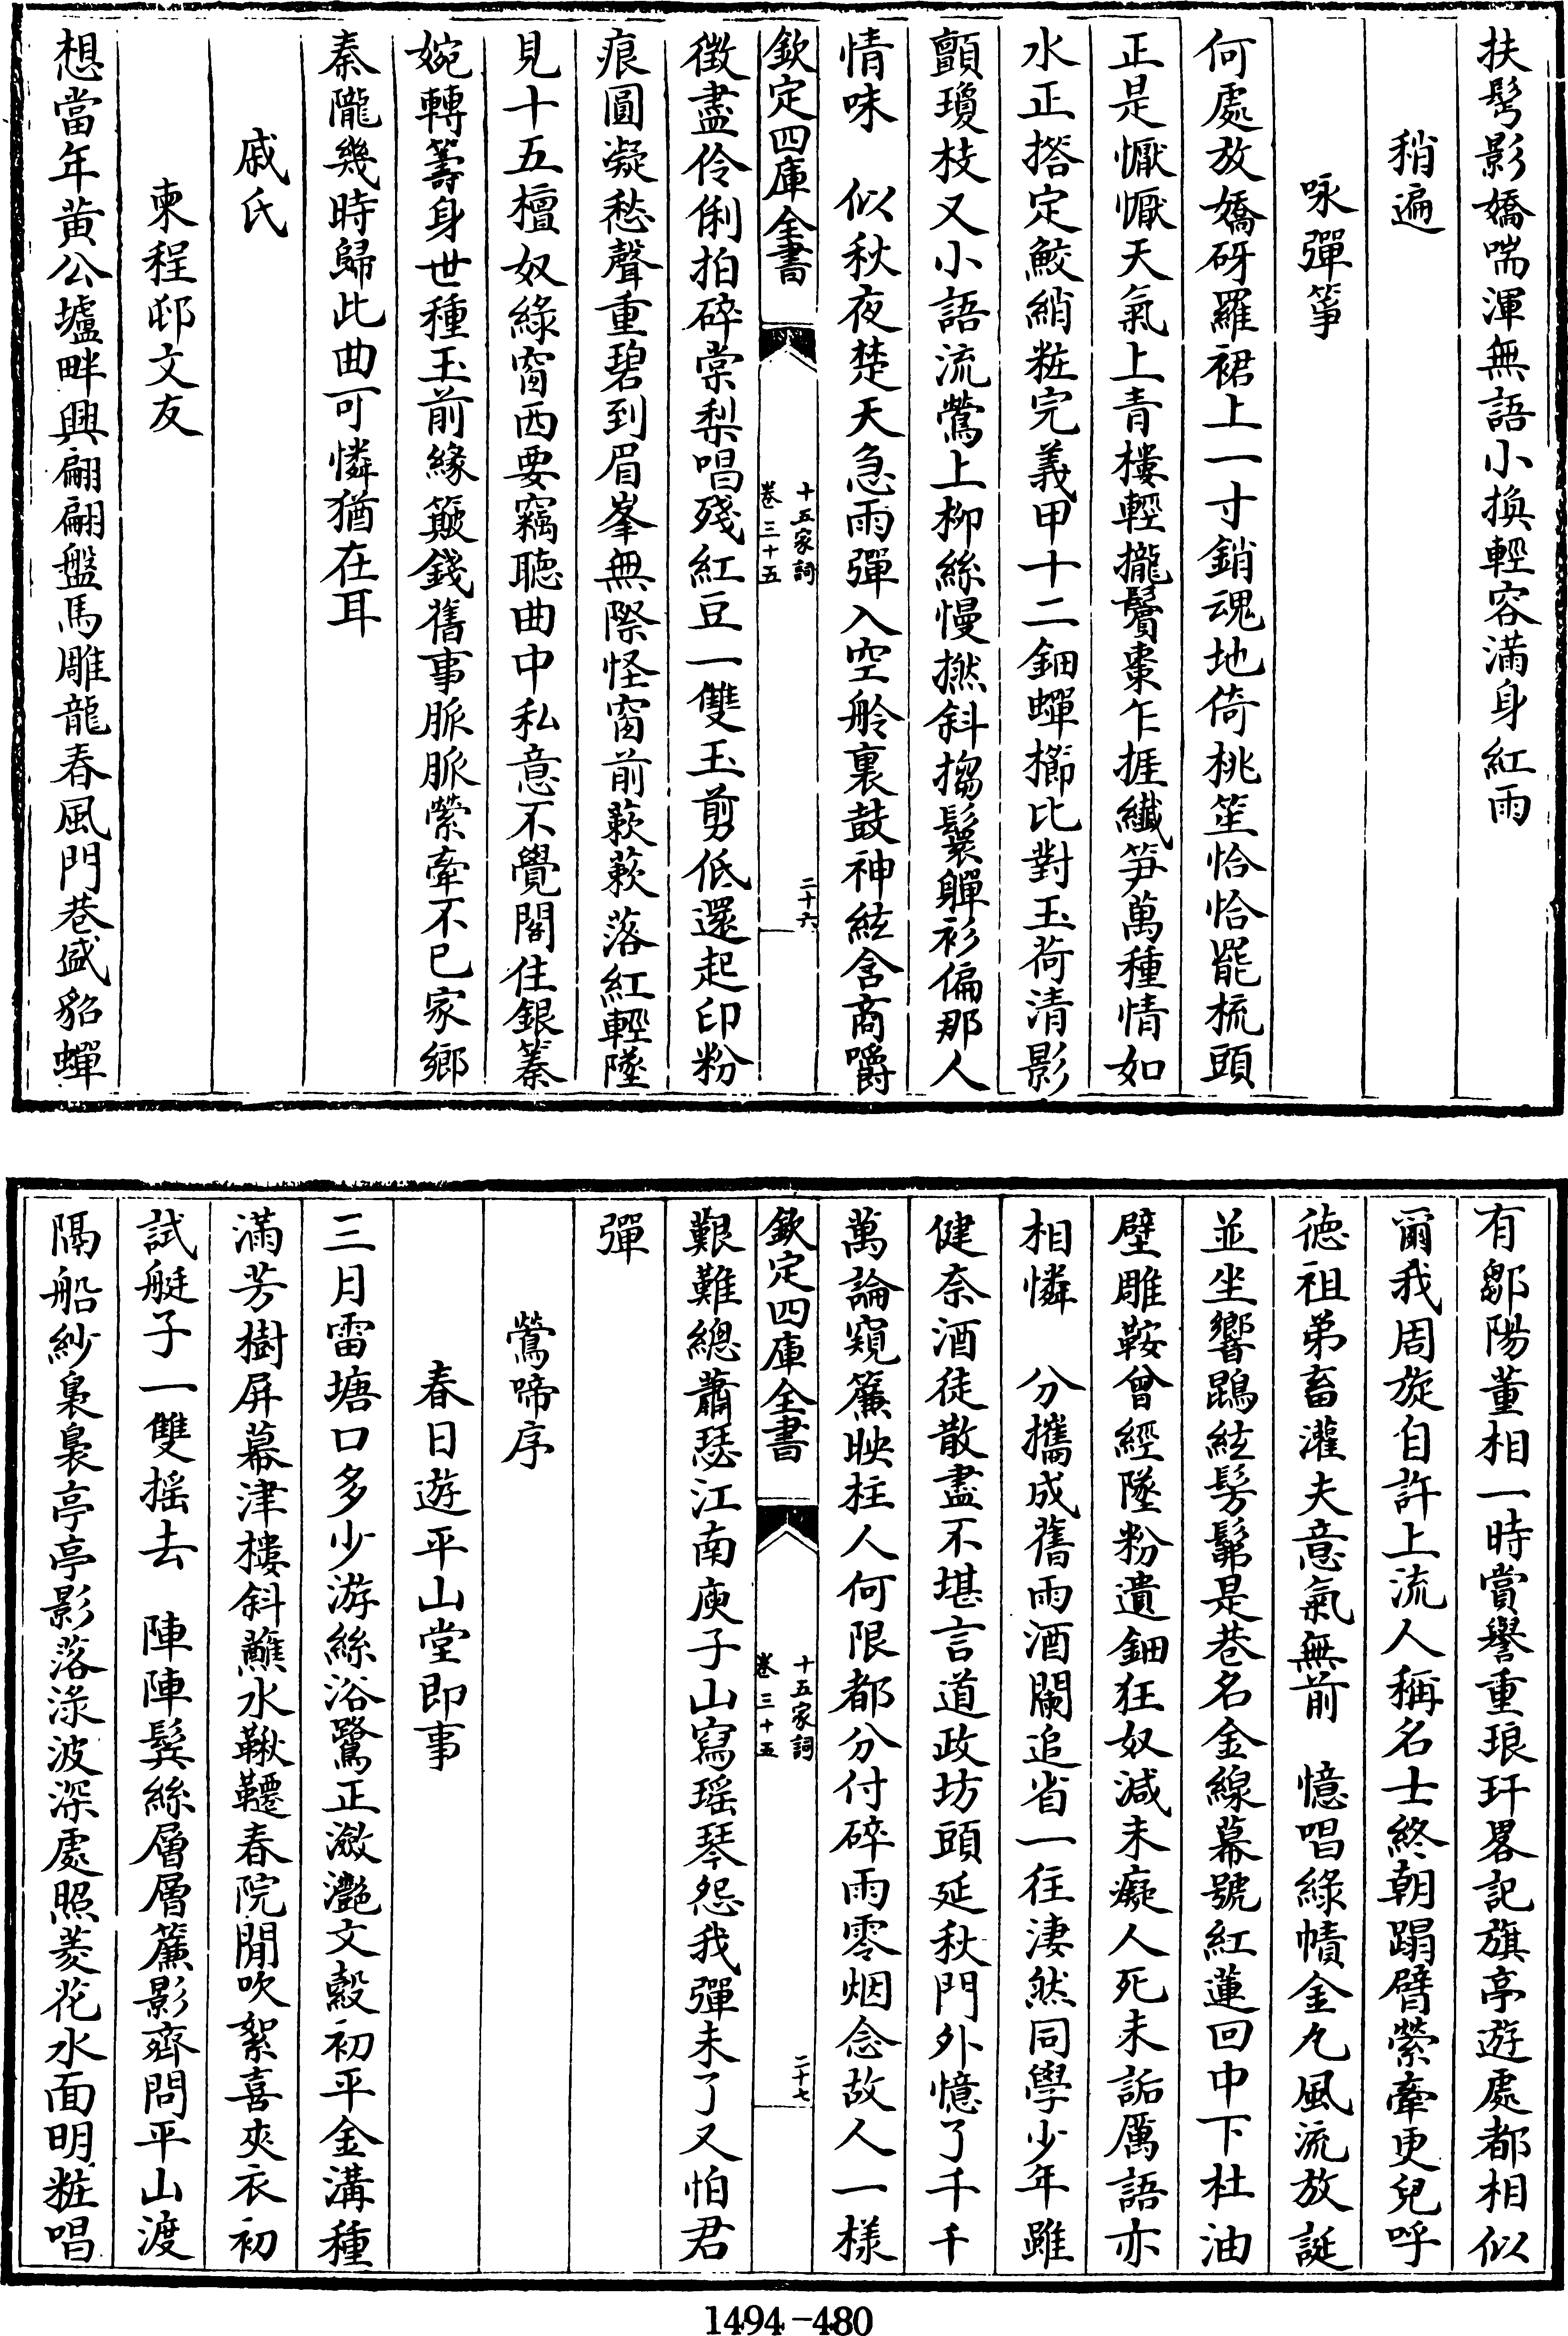 扶髩影嬌喘渾無語小換輕容滿身紅雨
稍遍
咏彈箏
何處放嬌砑羅裙上一寸銷魂地倚桃笙恰恰罷梳頭
正是懨懨天氣上青樓輕攏鬢棗乍捱纖笋萬種情如
水正搭定鮫綃粧完義甲十二鈿蟬擳比對玉荷清影
顫瓊枝又小語流鶯上柳絲慢撚斜搊鬟嚲衫偏那人
情味　似秋夜楚天急雨彈入空舲裏鼓神絃含商嚼
欽定四庫全書
十五家詞
卷三十五
二十六
徵盡伶俐拍碎棠梨唱殘紅豆一雙玉剪低還起印粉
痕圓凝愁聲重碧到眉峯無際怪窗前蔌蔌落紅輕墜
見十五檀奴綠窗西要竊聽曲中私意不覺閣住銀蓁
婉轉籌身世種玉前緣簸錢舊事脈脈縈牽不已家鄉
秦隴幾時歸此曲可憐猶在耳
戚氏
柬程邨文友
想當年黃公壚畔興翩翩盤馬雕龍春風門巷盛貂蟬
有鄒陽董相一時賞譽重琅玕畧記旗亭遊處都相似
爾我周旋自許上流人稱名士終朝蹋臂縈牽更兒呼
德祖弟畜灌夫意氣無前　憶唱綠幘金丸風流放誕
並坐響鵾絃髣髴是巷名金線幕號紅蓮回中下杜油
壁雕鞍曾經墜粉遺鈿狂奴減未癡人死未詬厲語亦
相憐　分攜成舊雨酒闌追省一往淒然同學少年雖
健奈酒徒散盡不堪言道政坊頭延秋門外憶了千千
萬論窺簾映柱人何限都分付碎雨零烟念故人一樣
欽定四庫全書
十五家詞
卷三十五
二十七
艱難總蕭瑟江南庾子山寫瑶琴怨我彈未了又怕君
彈
鶯啼序
春日遊平山堂即事
三月雷塘口多少游絲浴鷺正瀲灧文縠初平金溝種
滿芳樹屏幕津樓斜蘸水鞦韆春院閒吹絮喜夾衣初
試艇子一雙搖去　陣陣鬓絲層層簾影齊問平山渡
隔船紗裊裊亭亭影落淥波深處照菱花水面明粧唱
1494-480